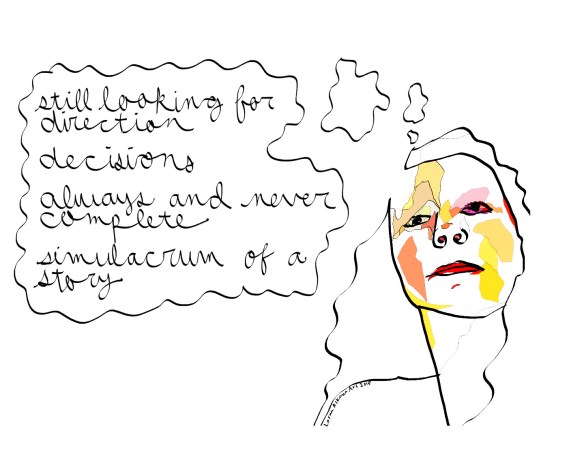 still looking for
direction
decisions
always and never
complete
simulacrum of a
story